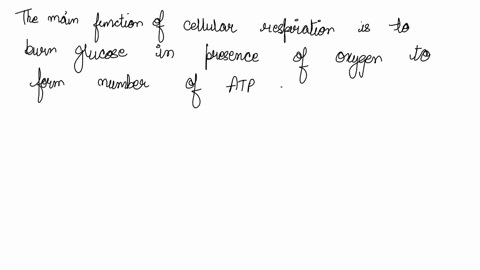 The main function of cellular respiration is to
burn glucose in presence of oxygen to
form number of ATP .